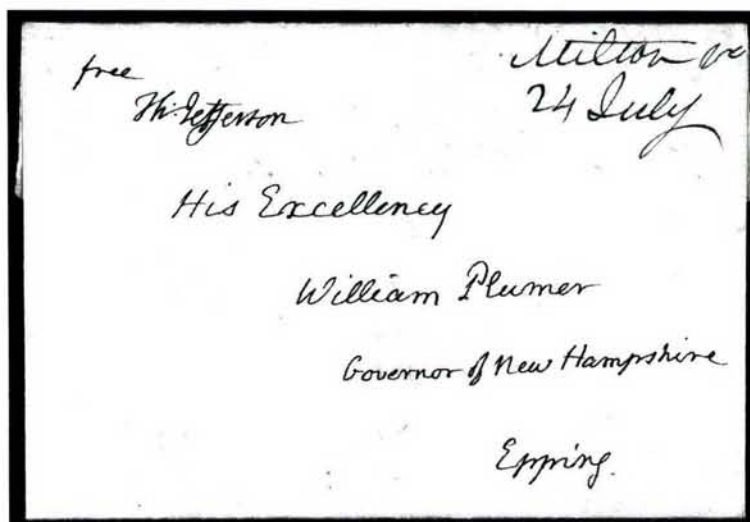 free
Th: Jefferson
Milton Va
24 July
His Excellency
William Plumer
Governor of New Hampshire
Epping.